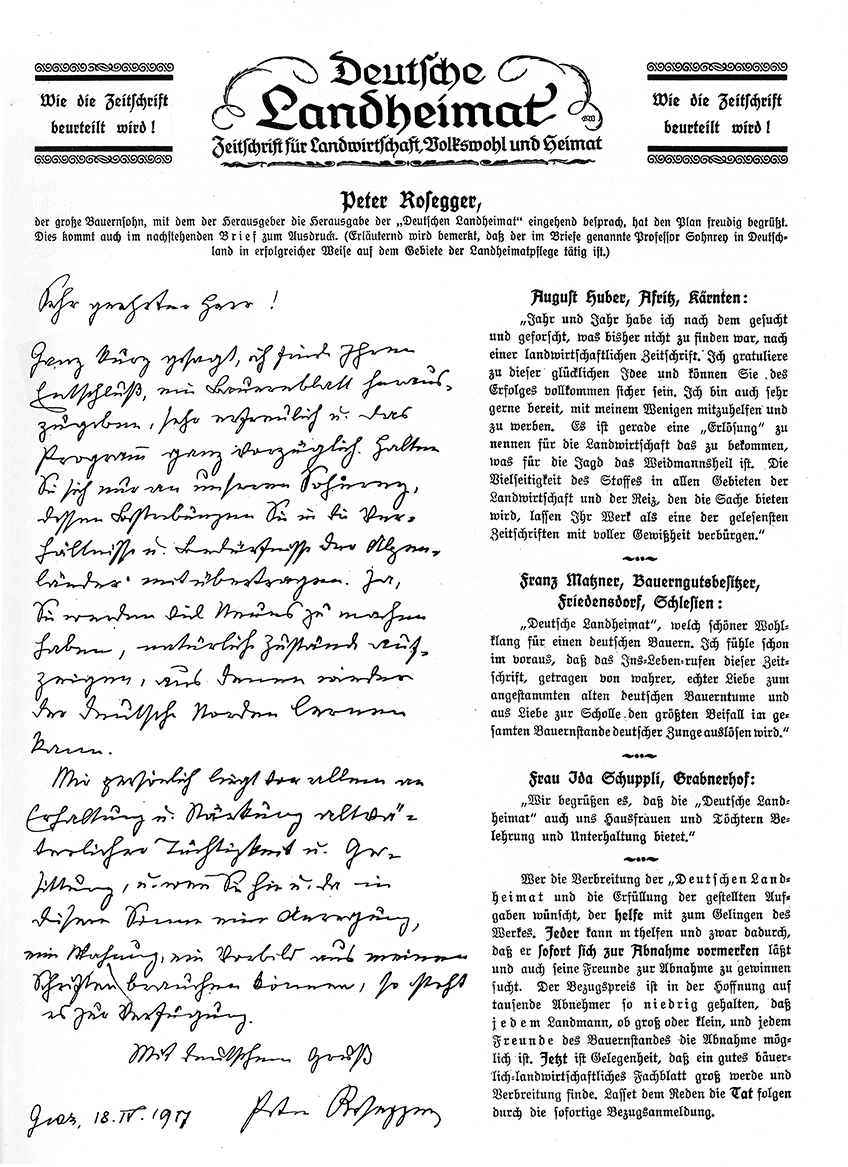 Wie die Zeitschrift
beurteilt wird!
Deutsche
Landheimat
Zeitschrift für Landwirtschaft, Volkswohl und Heimat
Wie die Zeitschrift
beurteilt wird!
Peter Rosegger,
der große Bauernsohn, mit dem der Herausgeber die Herausgabe der „Deutschen Landheimat“ eingehend besprach, hat den Plan freudig begrüßt.
Dies kommt auch im nachstehenden Brief zum Ausdruck. (Erläuternd wird bemerkt, daß der im Briefe genannte Professor Sohnrey in Deutsch-
land in erfolgreicher Weise auf dem Gebiete der Landheimatpflege tätig ist.)
Sehr geehrter Herr!
Ganz kurz gesagt, ich finde Ihren
Entschluß, ein Bauernblatt heraus-
zugeben, sehr erfreulich u. das
Programm ganz vorzüglich. Halten
Sie sich nur an unseren Sohnrey,
dessen Bestrebungen Sie in die Ver-
hältnisse u. Bedürfnisse der Alpen-
länder mitübertragen. Ja,
Sie werden viel Neues zu machen
haben, natürlich Zustände auf-
zeigen, aus denen wieder
der deutsche Norden lernen
kann.
Mir persönlich liegt vor allem an
Erhaltung u. Stärkung altvä-
terlicher Tüchtigkeit u. Ge-
sittung, u. wenn Sie hie u. da in
diesem Sinne eine Anregung,
eine Mahnung, ein Vorbild aus meinen
Schriften brauchen können, so steht
es zur Verfügung.
Mit deutschem Gruß
Graz, 18. IV. 1917 Peter Rosegger
August Huber, Afritz, Kärnten:
„Jahr und Jahr habe ich nach dem gesucht
und geforscht, was bisher nicht zu finden war, nach
einer landwirtschaftlichen Zeitschrift. Ich gratuliere
zu dieser glücklichen Idee und können Sie des
Erfolges vollkommen sicher sein. Ich bin auch sehr
gerne bereit, mit meinem Wenigen mitzuhelfen und
zu werben. Es ist gerade eine „Erlösung“ zu
nennen für die Landwirtschaft das zu bekommen,
was für die Jagd das Weidmannsheil ist. Die
Vielseitigkeit des Stoffes in allen Gebieten der
Landwirtschaft und der Reiz, den die Sache bieten
wird, lassen Ihr Werk als eine der gelesensten
Zeitschriften mit voller Gewißheit verbürgen.“
Franz Matzner, Bauerngutsbesitzer,
Friedensdorf, Schlesien:
„Deutsche Landheimat“, welch schöner Wohl-
klang für einen deutschen Bauern. Ich fühle schon
im voraus, daß das Ins-Leben-rufen dieser Zeit-
schrift, getragen von wahrer, echter Liebe zum
angestammten alten deutschen Bauerntume und
aus Liebe zur Scholle den größten Beifall im ge-
samten Bauernstande deutscher Zunge auslösen wird.“
Frau Ida Schuppli, Grabnerhof:
„Wir begrüßen es, daß die „Deutsche Land-
heimat“ auch uns Hausfrauen und Töchtern Be-
lehrung und Unterhaltung bietet.“
Wer die Verbreitung der „Deutschen Land-
heimat und die Erfüllung der gestellten Auf-
gaben wünscht, der helfe mit zum Gelingen des
Werkes. Jeder kann m thelfen und zwar dadurch,
daß er sofort sich zur Abnahme vormerken läßt
und auch seine Freunde zur Abnahme zu gewinnen
sucht. Der Bezugspreis ist in der Hoffnung auf
tausende Abnehmer so niedrig gehalten, daß
jedem Landmann, ob groß oder klein, und jedem
Freunde des Bauernstandes die Abnahme mög-
lich ist. Jetzt ist Gelegenheit, daß ein gutes bäuer-
lich-landwirtschaftliches Fachblatt groß werde und
Verbreitung finde. Lasset dem Reden die Tat folgen
durch die sofortige Bezugsanmeldung.